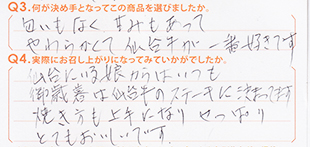 Q3.何が決め手となってこの商品を選びましたか。
匂いもなく甘みもあって
やわらかくて仙台牛が一番好きです
Q4.実際にお召し上がりになってみていかがでしたか。
仙台にいる娘からはいつも
御歳暮は仙台牛のステーキに決まってます
焼き方も上手になりやっぱり
とてもおいしいです。